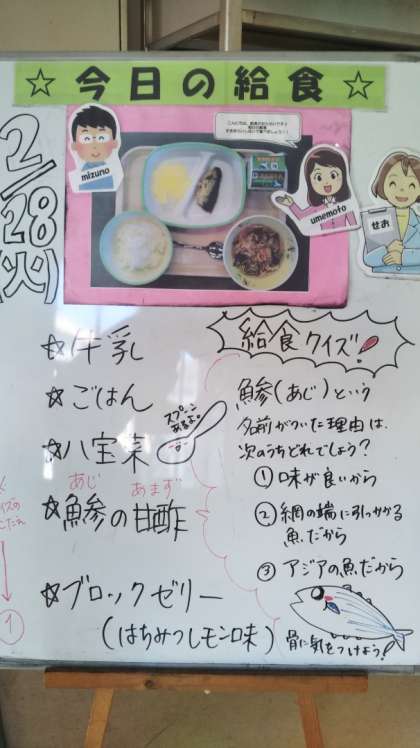 ☆今日の給食☆
2/28
(火)
mizuno
umemoto
せお
☆牛乳
☆ごはん
☆八宝菜
スプーン
あるよ。
あじ あまず
☆鯵の甘酢
☆ブロックゼリー
(はちみつレモン味)
給食クイズ!
鯵(あじ)という
名前がついた理由は、
次のうちどれでしょう?
①味が良いから
②網の端に引っかかる
魚だから
③アジアの魚だから
骨に気をつけよう!
①